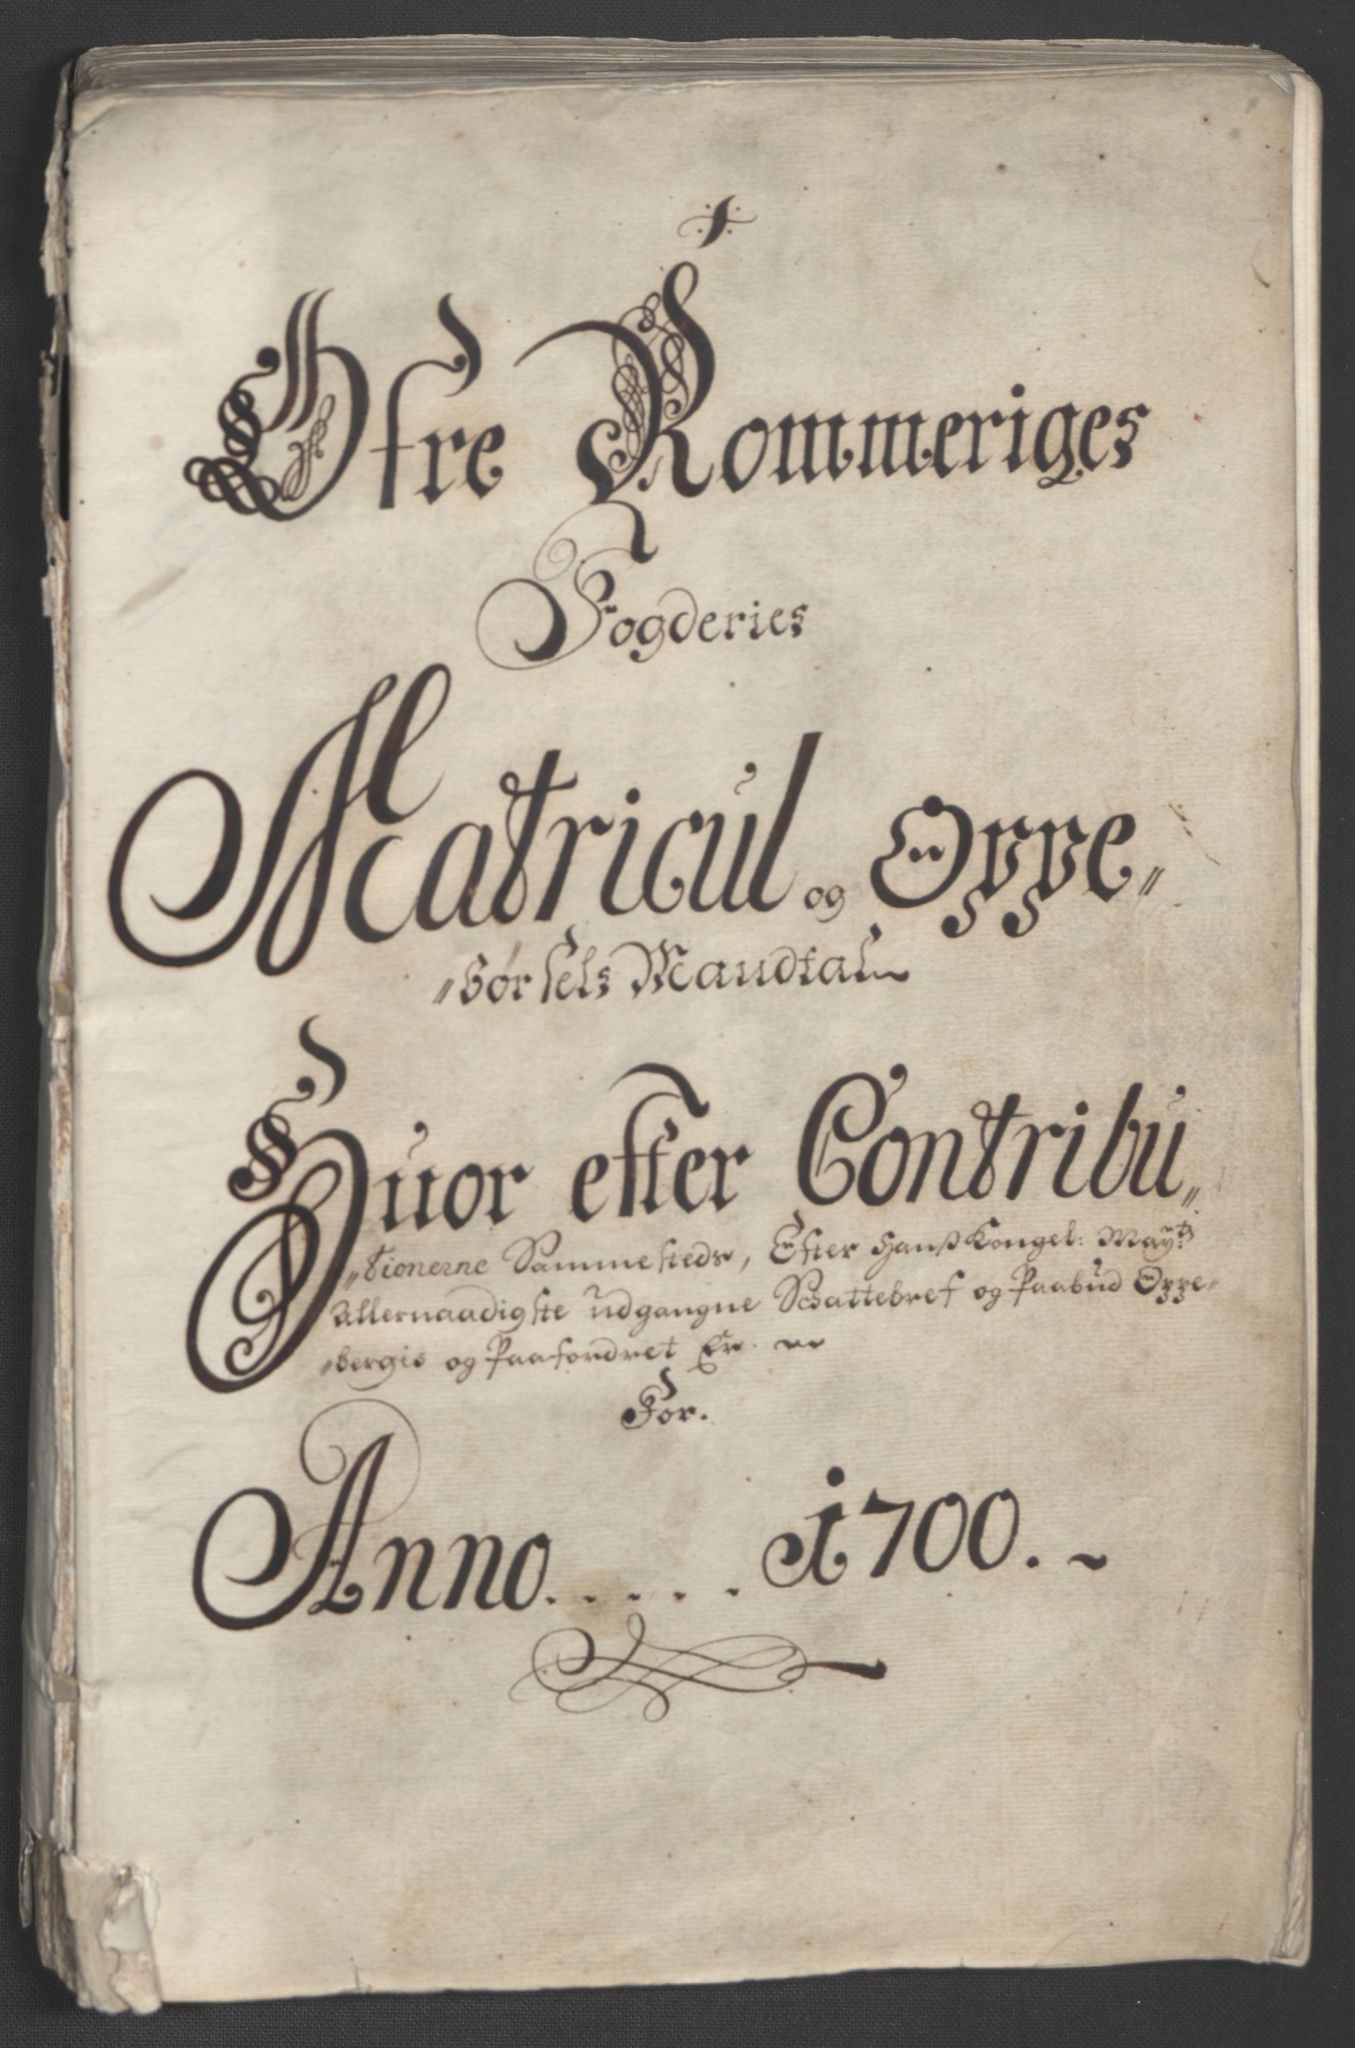 Øfre Rommeriges
Fogderies
Matricul og Oppe„
„børsels Mandtal
Huor efter Contribu„
„tionerne Sammesteds, Efter Hanß Kongel: Mayts
Allernaadigste udgangne Schattebref og Paabud Oppe„
„bergis og Paafordret Er.
For.
Anno. . . . . 1700.